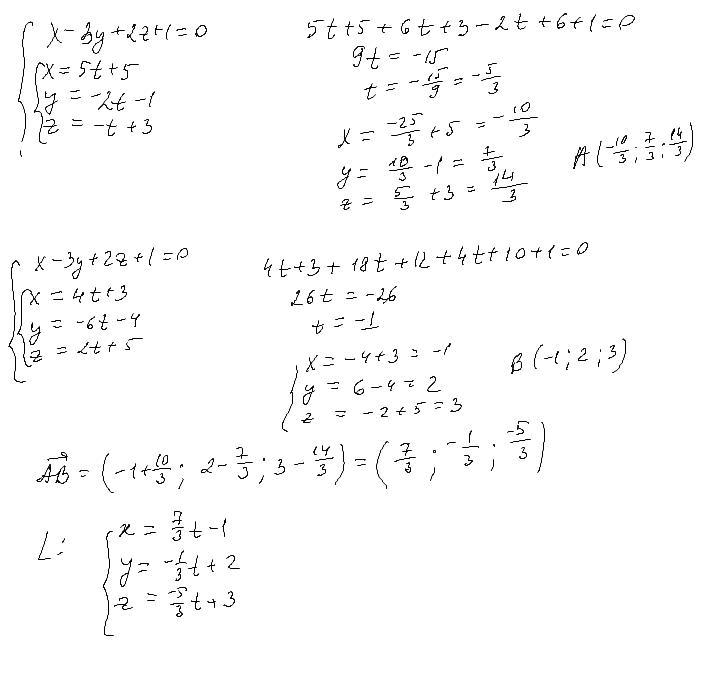 x-3y+2z+1=0
x=5t+5
y=-2t-1
z=-t+3
5t+5+6t+3-2t+6+1=0
9t=-15
t=-15/9=-5/3
x=-25/3+5=-10/3
y=10/3-1=7/3
z=5/3+3=14/3
A(-10/3;7/3;14/3)
x-3y+2z+1=0
x=4t+3
y=-6t-4
z=2t+5
4t+3+18t+12+4t+10+1=0
26t=-26
t=-1
x=-4+3=-1
y=6-4=2
z=-2+5=3
B(-1;2;3)
AB=(-1+10/3;2-7/3;3-14/3)=(7/3;-1/3;-5/3)
L:
x=7/3t-1
y=-1/3t+2
z=-5/3t+3